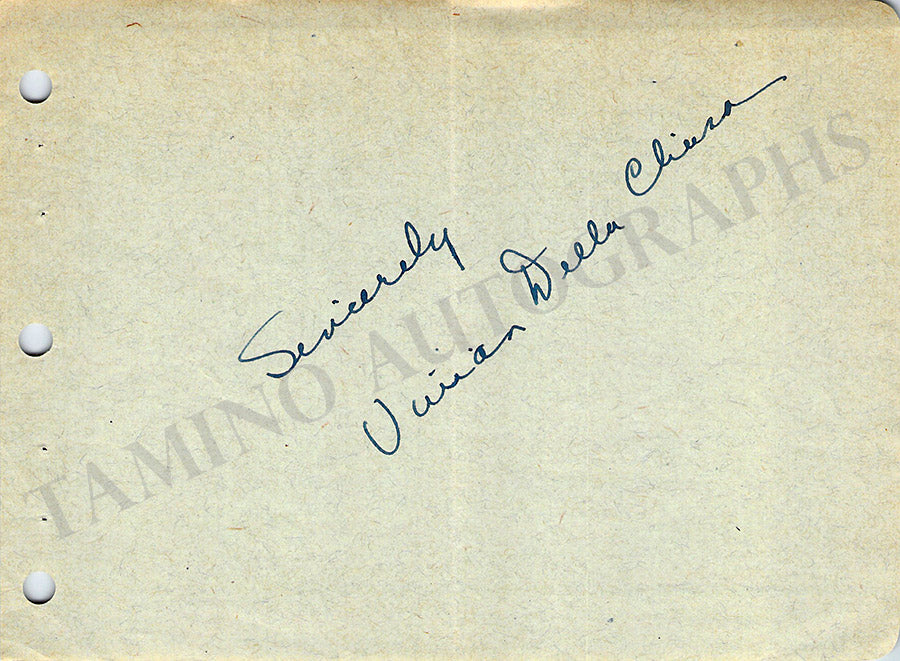 Sincerely
Vivian Della Chiesa
TAMINO AUTOGRAPHS